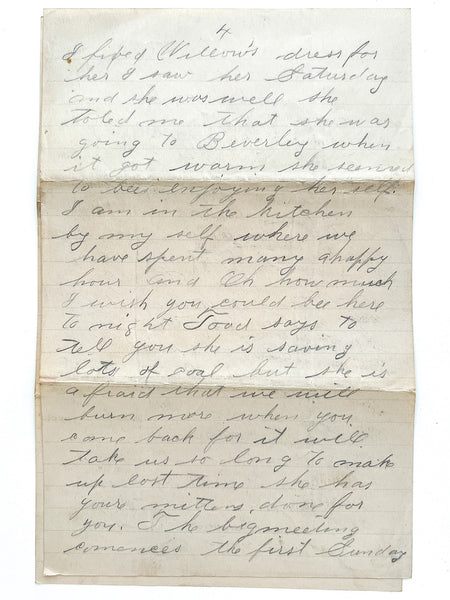 4
I fixed Willow's dress for
her I saw her Saturday
and she was well she
toled me that she was
going to Beverley when
it got warm she seemed
to bee enjoying her self.
I am in the kitchen
by my self where we
have spent many a happy
hour and Oh how much
I wish you could bee here
to night Tood says to
tell you she is saving
lots of coal but she is
afraid that we will
burn more when you
come back for it will
take us so long to make
up lost time she has
youre mittens done for
you. The big meeting
comances the first Sunday